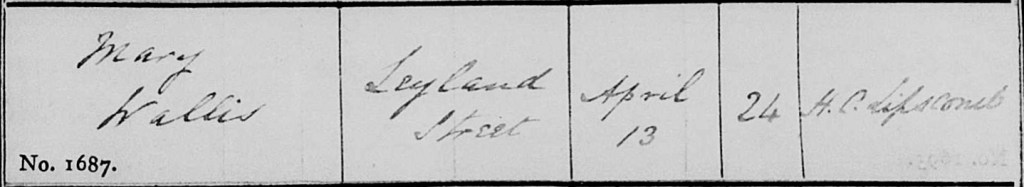 Mary
Wallis
No. 1687.
Leyland
Street
April
13
24
H. C. Lipscomb